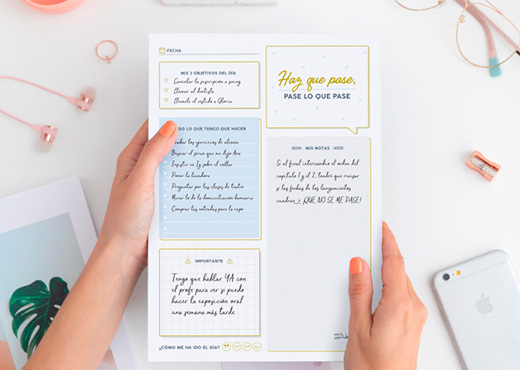 FECHA
MIS 3 OBJETIVOS DEL DÍA
Cancelar la suscripción a
Llamar al dentista
Llevarle el vestido a Gloria
Haz que pase,
PASE LO QUE PASE
DO LO QUE TENGO QUE HACER
los ejercicios de alemán
Buscar el serum que me dijo Ana
el collar
Poner la lavadora
Preguntar por las clases de teatro
Mirar lo de la domiciliación bancaria
Comprar las entradas para la expo
MIS NOTAS
Si al final intercambio el orden del
capítulo 1 y el 2, tendré que revisar
si las fechas de los lanzamientos
cuadran ¡QUE NO SE ME PASE!
IMPORTANTE
Tengo que hablar YA con
el profe para ver si puedo
hacer la exposición oral
una semana más tarde
¿CÓMO ME HA IDO EL DÍA?